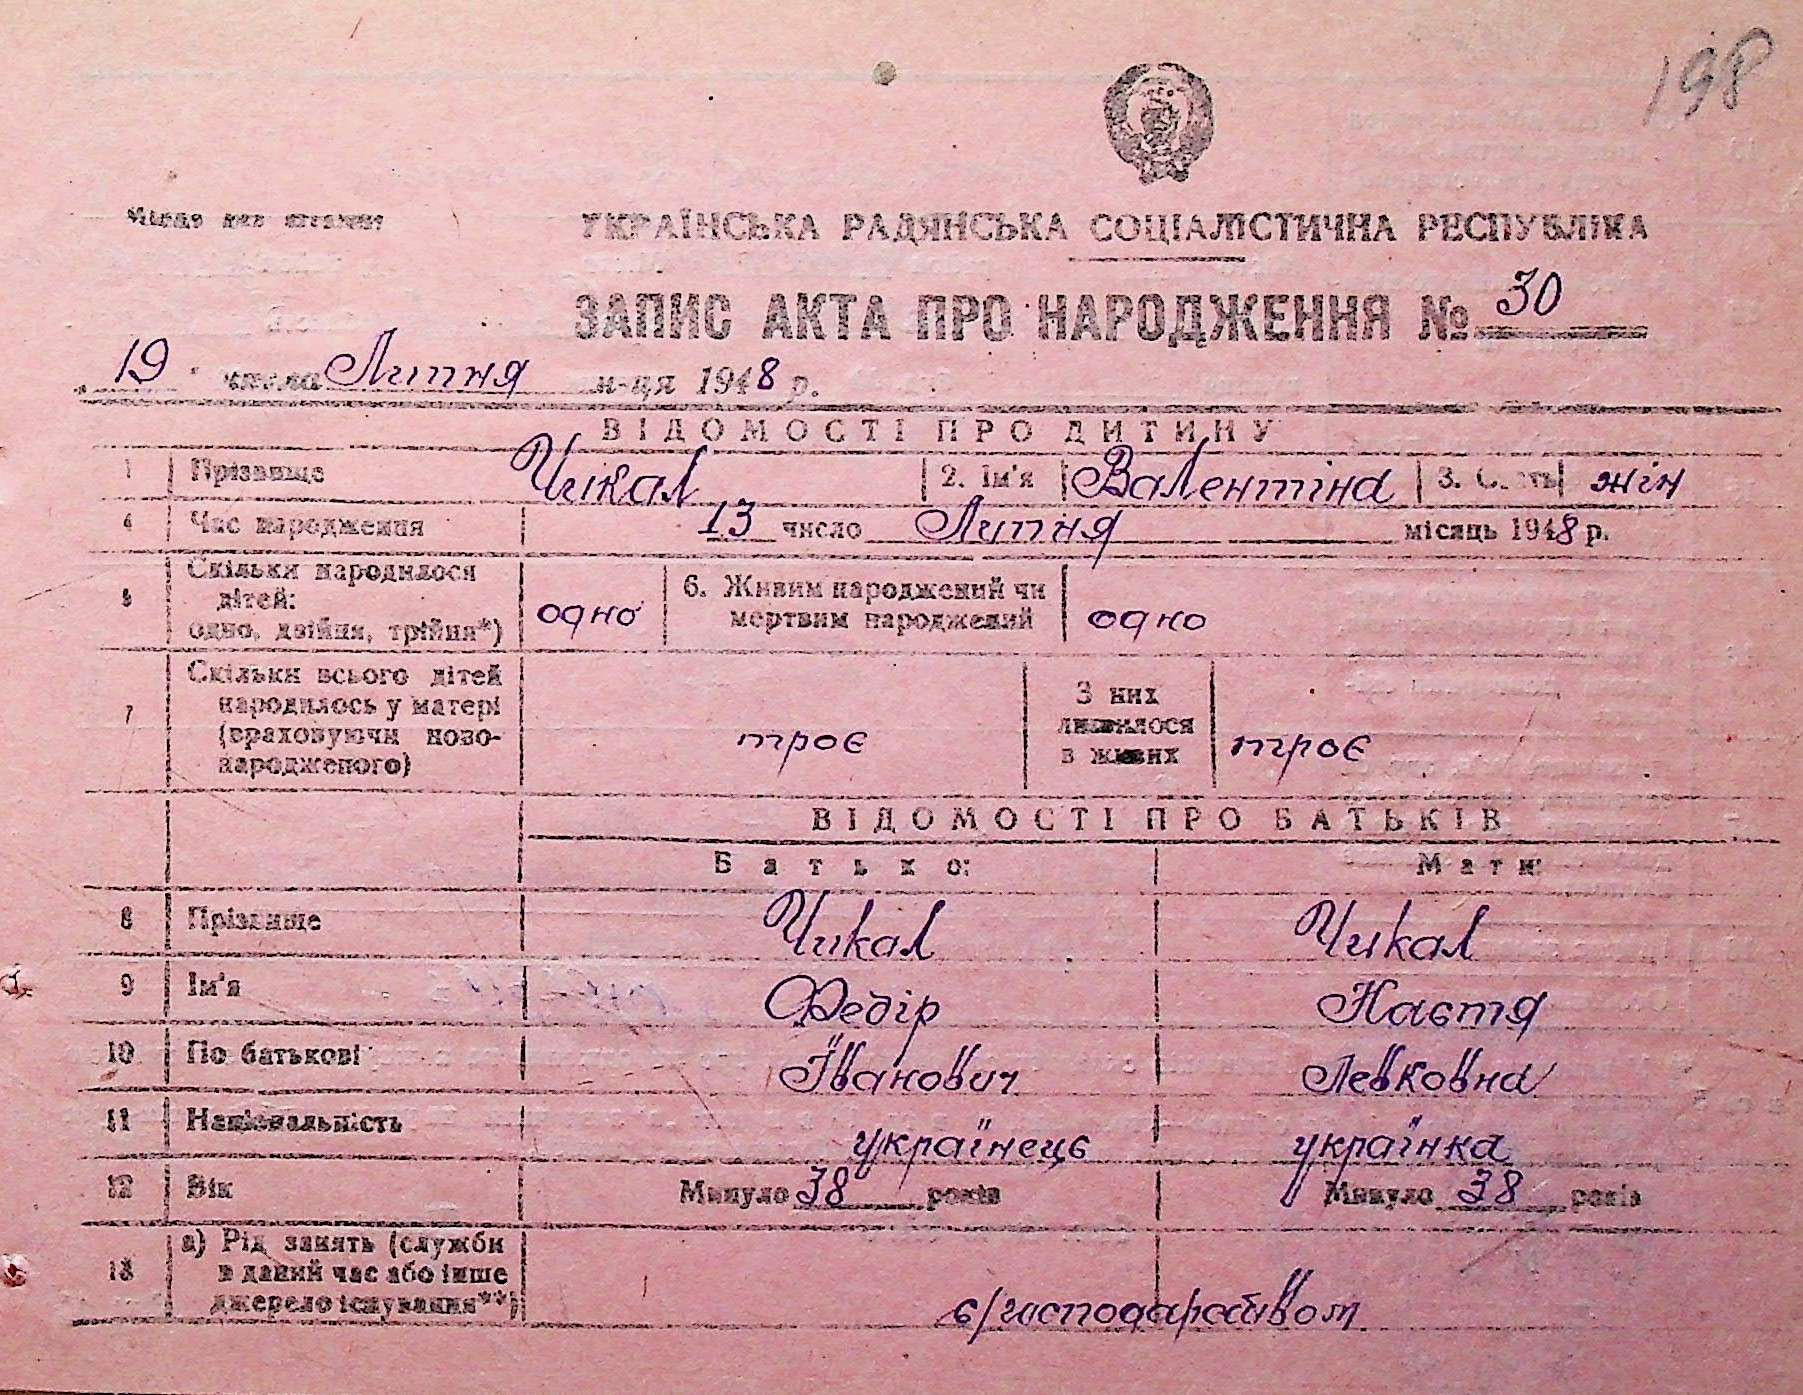 198
Місце для штампу
УКРАЇНСЬКА РАДЯНСЬКА СОЦІАЛІСТИЧНА РЕСПУБЛІКА
ЗАПИС АКТА ПРО НАРОДЖЕННЯ № 30
19 числа Липня м-ця 1948 р.
ВІДОМОСТІ ПРО ДИТИНУ
1 Прізвище Чикал 2. Ім'я Валентіна 3. Стать жін
4 Час народження 13 число Липня місяць 1948 р.
5 Скільки народилося дітей: одно, двійня, трійня*) одно 6. Живим народжений чи мертвим народжений одно
7 Скільки всього дітей народилось у матері (враховуючи новонародженого) троє З них лишилося в живих троє
ВІДОМОСТІ ПРО БАТЬКІВ
Батько: Мати:
8 Прізвище Чикал Чикал
9 Ім'я Федір Настя
10 По батькові Іванович Левковна
11 Національність українець українка
12 Вік Минуло 38 років Минуло 38 років
13 а) Рід занять (служби в даний час або інше джерело існування**)